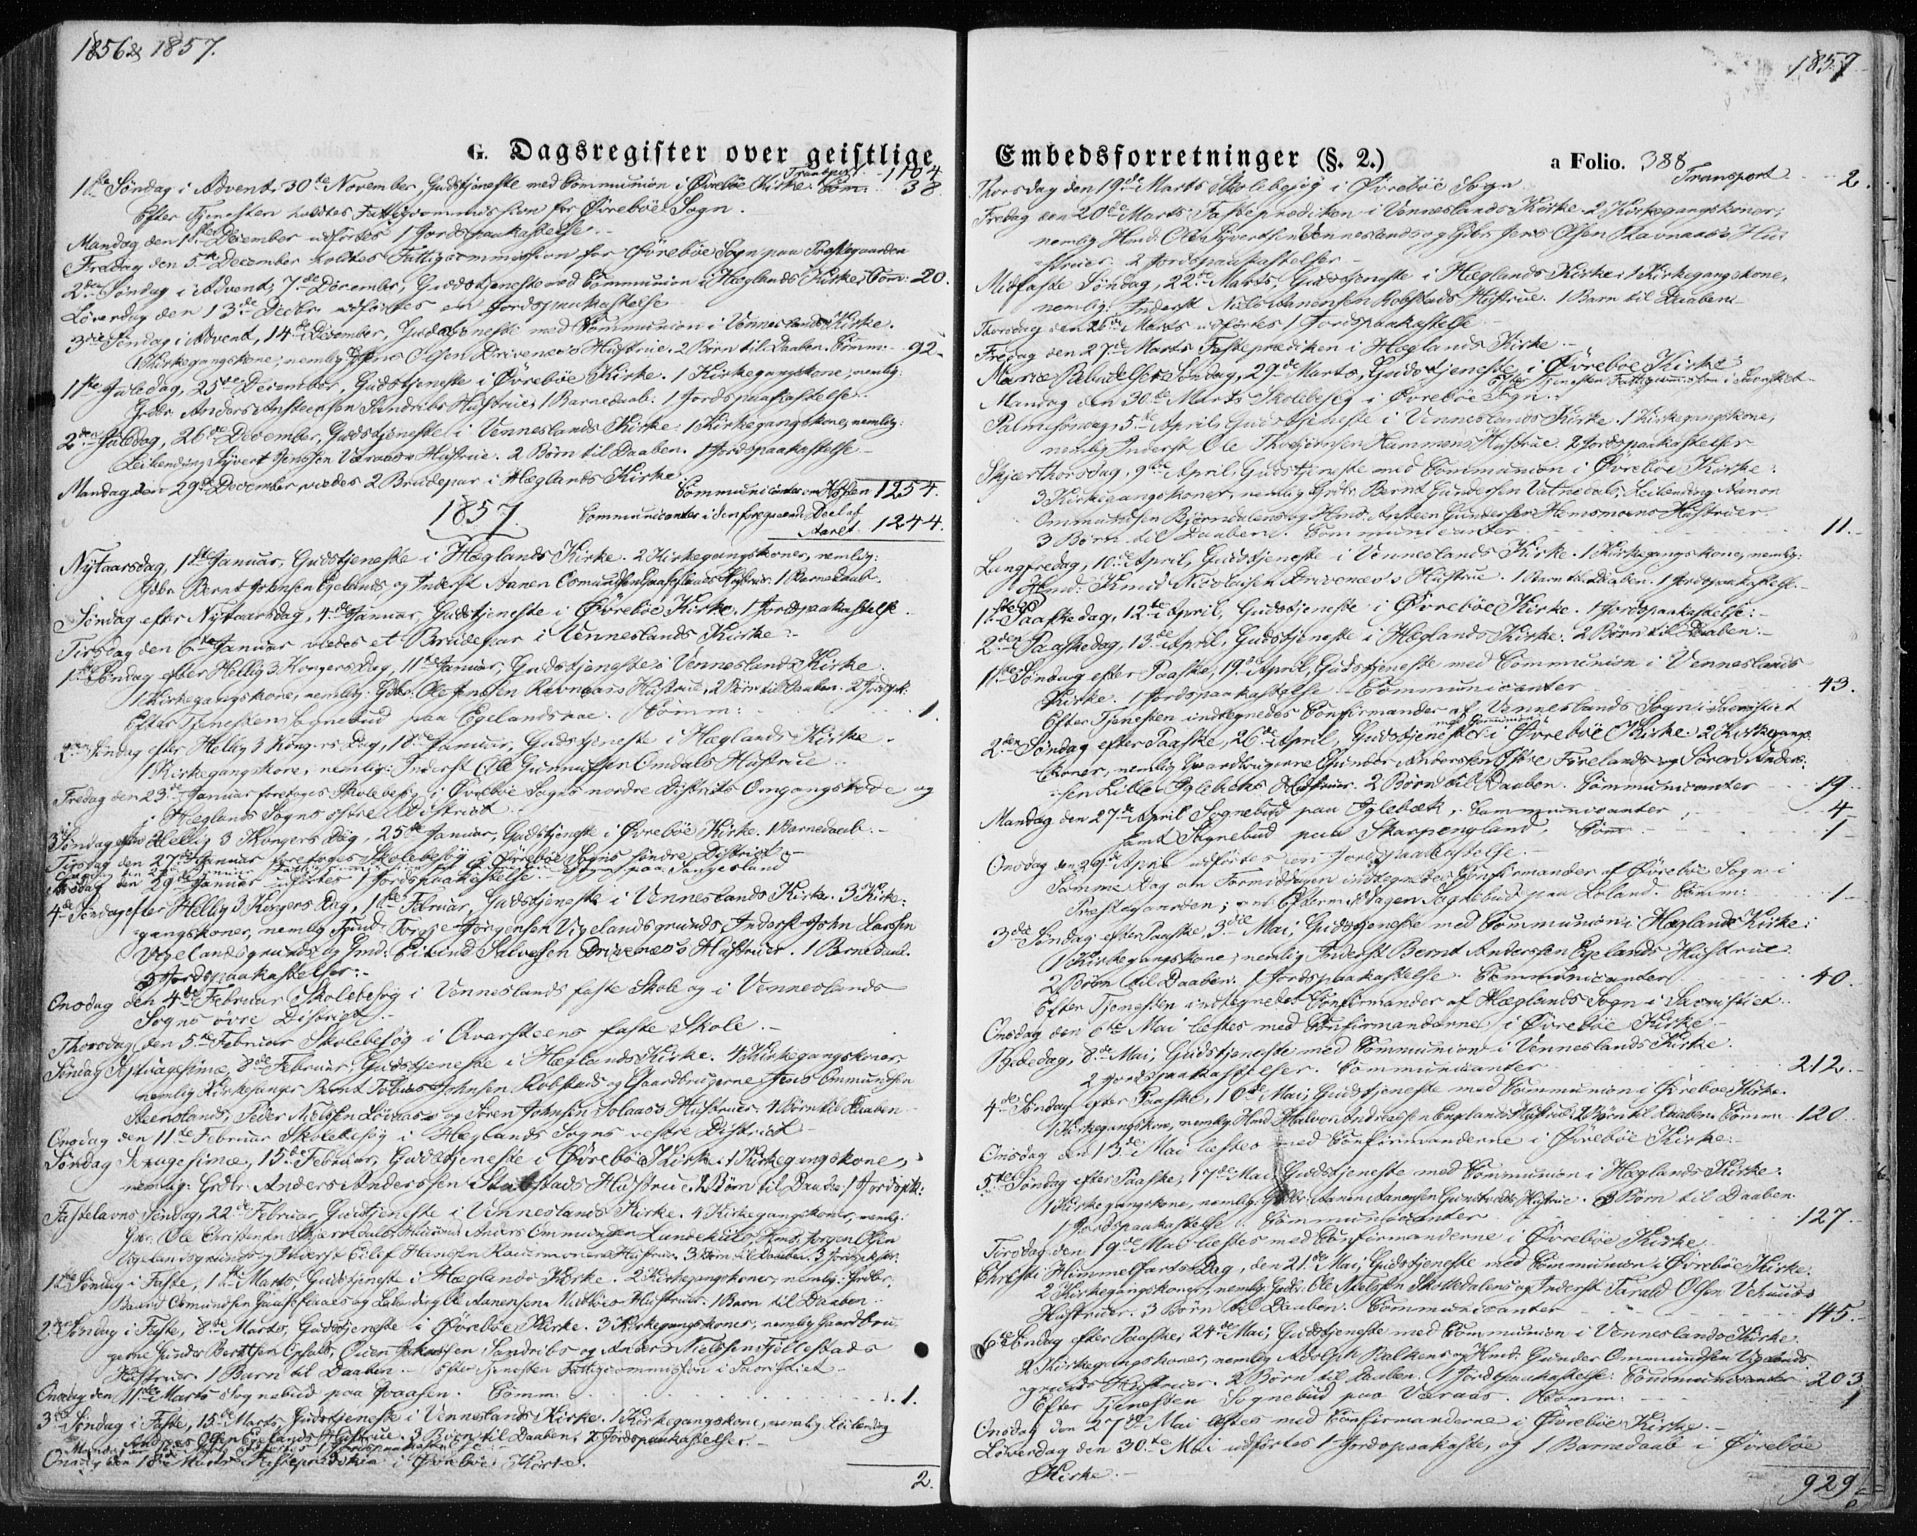 1856 & 1857.
G. Dagsregister over geistlige
Transport 1104
1ste Søndag i Advent, 30te November, Gudstjeneste med Communion i Øvrebøe Kirke. Com: 38
Efter Tjenesten holdtes Fattigcommission for Øvrebøe Sogn.
Mandag den 1ste December udførtes 1 Jordspaakastelse.
Fredag den 5te December holdtes Fattigcommission for Øvrebøe Sogn paa Præstegaarden
2den Søndag i Advent, 7de December, Gudstjeneste med Communion i Hæglands Kirke, Com: 20.
Løverdag den 13de Decbr. udførtes en Jordspaakastelse
3die Søndag i Advent, 14de December, Gudstjeneste med Communion i Venneslands Kirke.
1 Kirkegangskone, nemlig Jens Olsen Drivenes's Hustrue. 2 Børn til Daaben. Comm: 92.
1ste Juledag, 25de December, Gudstjeneste i Øvrebøe Kirke. 1 Kirkegangskone, nemlig:
Gdbr. Anders Ansteensen Sandribs Hustrue, 1 Barnedaab. 1 Jordspaakastelse.
2den Juledag, 26de December, Gudstjeneste i Venneslands Kirke. 1 Kirkegangskone, nemlig:
Leilending Syvert Jenssen Varaas Hustrue. 2 Børn til Daaben. 1 Jordspaakastelse.
Mandag den 29de December viedes 2 Brudepar i Hæglands Kirke.
Communicanter om Høsten 1254.
1857. Communicanter i den foregaaende Deel af
Aaret 1244.
Nytaarsdag, 1ste Januar, Gudstjeneste i Hæglands Kirke. 2 Kirkegangskoner, nemlig:
Gdbr. Bernt Johnsen Egelands og Inderst Aanen Osmundsen Hustruer. 1 Barnedaab.
Søndag efter Nytaarsdag, 4de Januar, Gudstjeneste i Øvrebøe Kirke. 1 Jordspaakastelse.
Tirsdag den 6te Januar viedes et Brudepar i Venneslands Kirke.
1ste Søndag efter Hellig 3 Kongers Dag, 11te Januar, Gudstjeneste i Venneslands Kirke.
1 Kirkegangskone, nemlig: Gdbr. Ole Jenssen Ravnaas's Hustrue, 2 Børn til Daaben. 2 Jordspk:
Efter Tjenesten Sognebud paa Egelandsaae. Comm: 1.
2den Søndag efter Hellig 3 Kongers Dag, 18de Januar, Gudstjeneste i Hæglands Kirke.
1 Kirkegangskone, nemlig: Inderst Ole Gunnufsen Omdals Hustrue.
Fredag den 23de Januar foretoges Skolebesøg i Øvrebøe Sogns nordre Districts Omgangsskole og
i Hæglands Sogns østre District.
3die Søndag efter Hellig 3 Kongers Dag, 25de Januar, Gudstjeneste i Øvrebøe Kirke. 1 Barnedaab.
Tirsdag den 27de Januar foretoges Skolebesøg i Øvrebøe Sogns søndre District.
den 29de Januar udførtes 1 Jordspaakastelse.
4de Søndag efter Hellig 3 Kongers Dag, 1ste Februar, Gudstjeneste i Venneslands Kirke. 3 Kirke-
gangskoner, nemlig Torje Jørgensen Vigelandsgrunds, Inderst John Larssen
Vigelandsgrunds og Hmd: Eivind Salvesen Drivenes's Hustruer. 1 Barnedaab.
3 Jordspaakastelser.
Onsdag den 4de Februar Skolebesøg i Venneslands faste Skole og i Venneslands
Sogns øvre District.
Thorsdag den 5te Februar Skolebesøg i Qvarsteens faste Skole.
Søndag Septuagesimæ, 8de Februar, Gudstjeneste i Hæglands Kirke. 4 Kirkegangskoner,
nemlig Kirkesanger Bernt Tobias Johnsen Robstads og Gaardbrugerne Jens Ommundsen
Steenslands, Peder Nielsen og Søren Johnsen Solaas's Hustruer. 4 Børn til Daaben.
Onsdag den 11te Februar Skolebesøg i Hæglands Sogns vestre District.
Søndag Sexagesimæ, 15de Februar, Gudstjeneste i Øvrebøe Kirke. 1 Kirkegangskone,
nemlig: Grdbr. Anders Andersen Hustrue. 2 Børn til Daaben. 1 Jordspk:
Fastelavns Søndag, 22de Februar, Gudstjeneste i Venneslands Kirke. 4 Kirkegangskoner, nemlig:
Ole Christensen Anders Ommundsen Lundekils, Hmd. Jørgen Olsen
Vigelandsgrunds og Inderst Eilef Hansen Hustruer. 3 Børn til Daaben. 3 Jordspk:
1ste Søndag i Faste, 1ste Marts, Gudstjeneste i Hæglands Kirke. 2 Kirkegangskoner, nemlig: Grdbr.
Osmundsen og Ole Aanensen Hustruer. 1 Barn til Daaben.
2den Søndag i Faste, 8de Marts, Gudstjeneste i Øvrebøe Kirke. 3 Kirkegangskoner, nemlig Gaardbru-
gerne Gunder Berntsen Sandribs og Anders Nielsen
Hustruer. 1 Barn til Daaben. Efter Tjenesten Fattigcommission i Sacristiet.
Onsdag den 11te Marts Sognebud paa Comm: 1.
3die Søndag i Faste, 15de Marts, Gudstjeneste i Venneslands Kirke. 1 Kirkegangskone, nemlig Leilending
Hustrue. 3 Børn til Daaben. 2 Jordspaakastelser.
Onsdag den 18de Marts Fasteprædiken i Øvrebøe Kirke.
2.
1857
Embedsforretninger (§. 2.) a Folio. 388
Transport 2.
Thorsdag den 19de Marts Skolebesøg i Øvrebøe Sogn.
Fredag den 20de Marts, Fasteprædiken i Venneslands Kirke. 2 Kirkegangskoner,
nemlig Hmd. Ole Syvertsen Venneslands og Gdbr. Jens Olsen Ravnaas's Hu-
struer. 2 Jordspaakastelser.
Midfaste Søndag, 22de Marts, Gudstjeneste i Hæglands Kirke. 1 Kirkegangskone,
nemlig: Inderst Niels Aanensen Robstads Hustrue. 1 Barn til Daaben.
Thorsdag den 26de Marts udførtes 1 Jordspaakastelse
Fredag den 27de Marts Fasteprædiken i Hæglands Kirke.
Mariæ Bebudelses Søndag, 29de Marts, Gudstjeneste i Øvrebøe Kirke.
Efter Tjenesten Fattigcommission i Sacristiet.
Mandag den 30te Marts Skolebesøg i Øvrebøe Sogn.
Palmesøndag, 5te April, Gudstjeneste i Venneslands Kirke. 1 Kirkegangskone,
nemlig Inderst Ole Thorbjørnsen Hammens Hustrue. 2 Jordspaakastelser
Skjærthorsdag, 9de April, Gudstjeneste med Communion i Øvrebøe Kirke.
3 Kirkegangskoner, nemlig Grdbr. Bernt Gundersen Vatnedals, Leilending Aanon
Ommundsen Bjørndalens og Hmd. Ansteen Gundersen Homsmoens Hustruer.
3 Børn til Daaben. Communicanter 11.
Langfredag, 10de April, Gudstjeneste i Venneslands Kirke. 1 Kirkegangskone, nemlig:
Hmd: Knud Nicolaisen Drivenes's Hustrue. 1 Barn til Daaben. 1 Jordspaakastelse.
1ste Paaskedag, 12te April, Gudstjeneste i Øvrebøe Kirke. 1 Jordspaakastelse.
2den Paaskedag, 13de April, Gudstjeneste i Hæglands Kirke. 2 Børn til Daaben.
1ste Søndag efter Paaske, 19de April, Gudstjeneste med Communion i Venneslands
Kirke. 1 Jordspaakastelse. Communicanter 43.
Efter Tjenesten indtegnedes Confirmander af Venneslands Sogn i Sacristiet
2den Søndag efter Paaske, 26de April, Gudstjeneste med Communion i Øvrebøe Kirke. 2 Kirkegangs-
koner, nemlig Gaardbrugerne Gunder Andersen Østre Firelands og Søren Anders-
sen Lille Iglebeks Hustruer. 2 Børn til Daaben. Communicanter 19.
Mandag den 27de April Sognebud paa Iglebæk. Communicanter 4
samt Sognebud paa Skarpengland. Com 1
Onsdag den 29de April udførtes en Jordspaakastelse.
Samme Dag om Formiddagen indtegnedes Confirmander af Øvrebøe Sogn i
Præstegaarden; om Eftermiddagen Sognebud paa Loland. Comm: 1
3die Søndag efter Paaske, 3die Mai, Gudstjeneste med Communion i Hæglands Kirke.
1 Kirkegangskone, nemlig Inderst Bernt Anderssen Egelands Hustrue.
2 Børn til Daaben. 1 Jordspaakastelse. Communicanter 40.
Efter Tjenesten indtegnedes Confirmander af Hæglands Sogn i Sacristiet.
Onsdag den 6te Mai læstes med Confirmanderne i Øvrebøe Kirke
Bededag, 8de Mai, Gudstjeneste med Communion i Venneslands Kirke.
2 Jordspaakastelser. Communicanter 212.
4de Søndag efter Paaske, 10de Mai, Gudstjeneste med Communion i Øvrebøe Kirke.
1 Kirkegangskone, nemlig Hmd Halvor Andreassen Englands Hustrue. 2 Børn til Daaben. Comm. 120.
Onsdag den 13de Mai læstes med Confirmanderne i Øvrebøe Kirke.
5te Søndag efter Paaske, 17de Mai, Gudstjeneste med Communion i Hæglands Kirke.
1 Kirkegangskone, nemlig Gdbr. Aanen Aanensen Hustrue. 3 Børn til Daaben.
1 Jordspaakastelse. Communicanter 127.
Tirsdag den 19de Mai læstes med Confirmanderne i Øvrebøe Kirke
Christi Himmelfarts Dag, den 21de Mai, Gudstjeneste med Communion i Øvrebøe Kirke.
2 Kirkegangskoner, nemlig Gdbr. Ole Nielsen og Inderst Tarald Olsen
Hustruer. 3 Børn til Daaben. Communicanter 145.
6te Søndag efter Paaske, 24de Mai, Gudstjeneste med Communion i Venneslands Kirke.
2 Kirkegangskoner, nemlig Adolph Balkens og Hmd. Gunder Ommundsen Vigelands-
grunds Hustruer. 2 Børn til Daaben. 1 Jordspaakastelse. Communicanter 203
Efter Tjenesten Sognebud paa Varaas. Comm: 1
Onsdag den 27de Mai læstes med Confirmanderne i Øvrebøe Kirke.
Løverdag den 30te Mai udførtes 1 Jordspaakaste, og 1 Barnedaab i Øvrebøe
Kirke.
929.